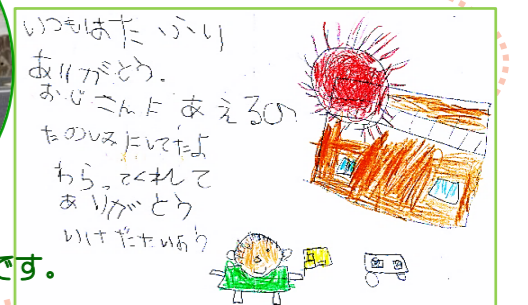 いつもはたふり
ありがとう。
おじさんに あえるの
たのしみにしてたよ
わらってくれて
ありがとう
いけだたいがう
です。